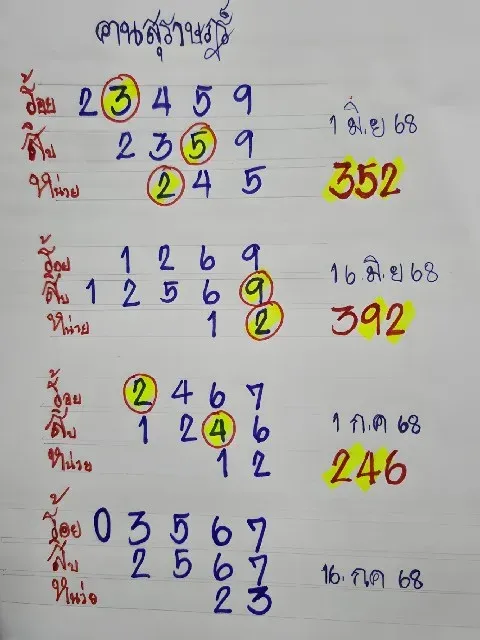 คนสุราษฎร์
ร้อย 2 3 4 5 9
สิบ 2 3 5 9
หน่วย 2 4 5
1 มิ.ย 68
352
ร้อย 1 2 6 9
สิบ 1 2 5 6 9
หน่วย 1 2
16 มิ.ย 68
392
ร้อย 2 4 6 7
สิบ 1 2 4 6
หน่วย 1 2
1 ก.ค 68
246
ร้อย 0 3 5 6 7
สิบ 2 5 6 7
หน่ว 2 3
16. ก.ค 68